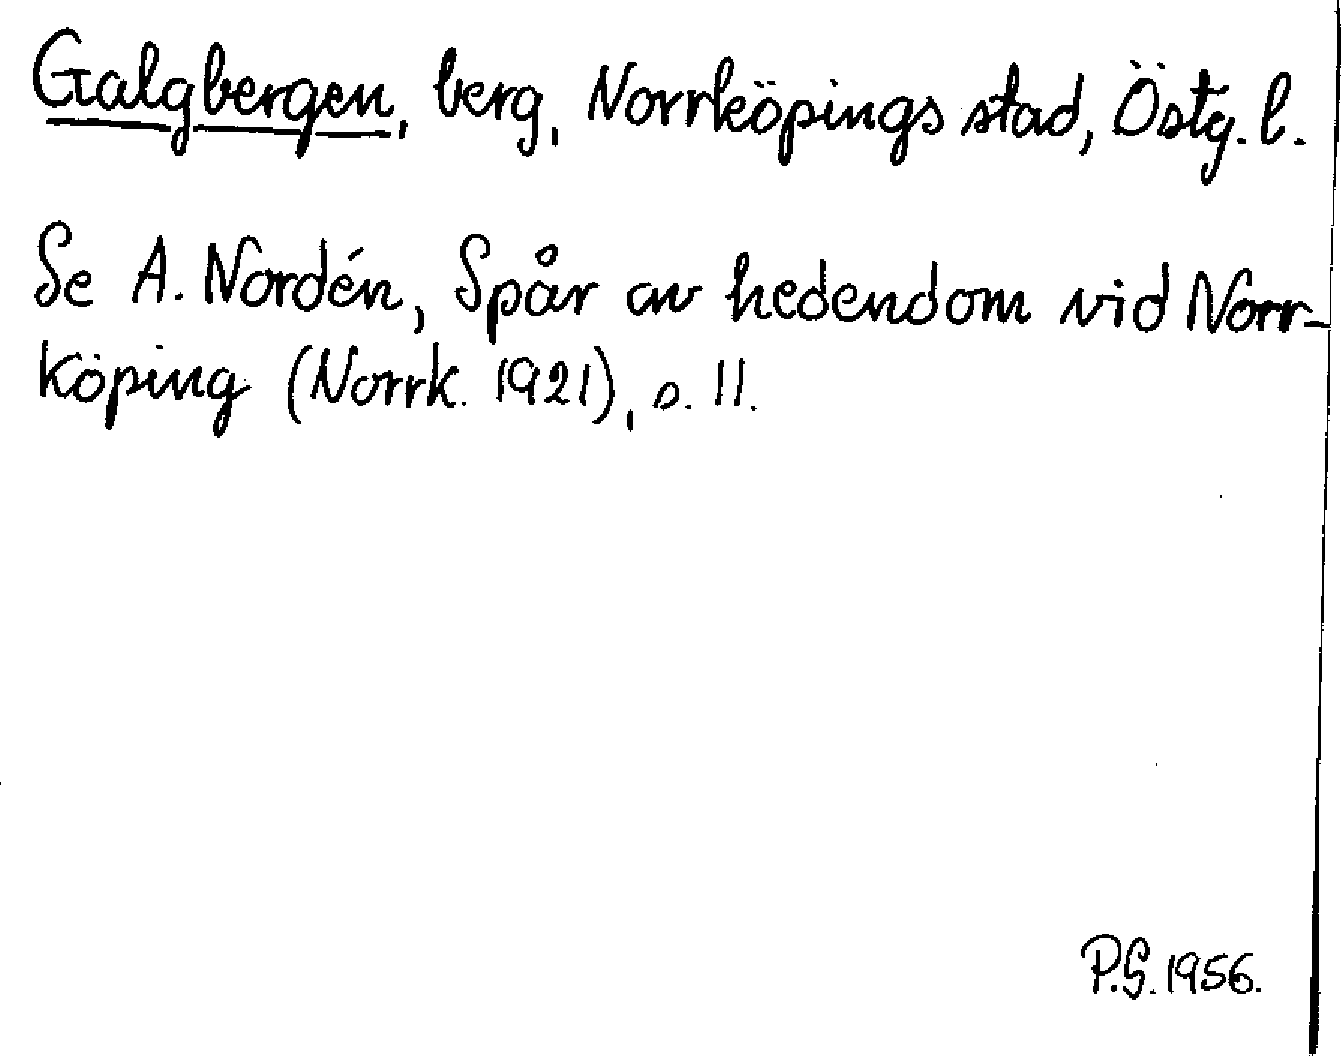 Galgbergen, berg, Norrköpings stad, Östg. l.
Se A. Nordén, Spår av hedendom vid Norr-
köping (Norrk. 1921), s. 11.
P.S. 1956.